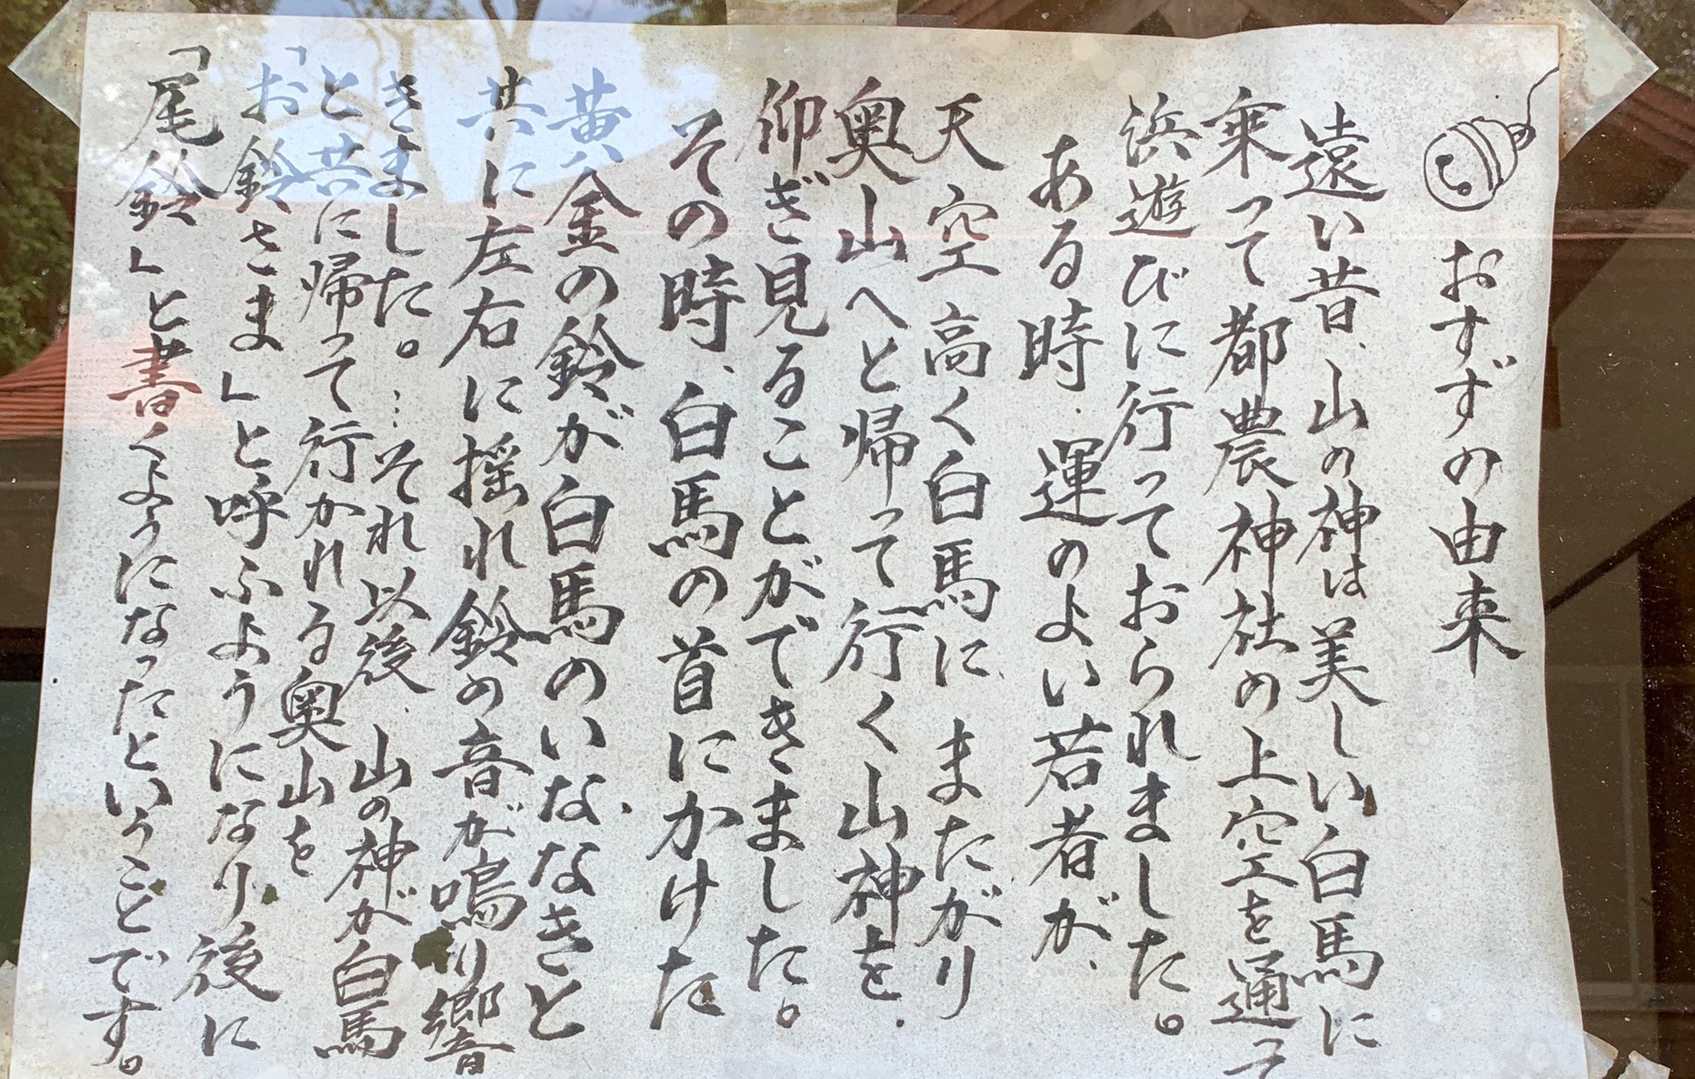 おすずの由来
遠い昔、山の神は美しい白馬に
乗って都農神社の上空を通って
浜遊びに行っておられました。
ある時、運のよい若者が、
天空高く白馬に、またがり
奥山へと帰って行く山神を、
仰ぎ見ることができました。
その時、白馬の首にかけた
黄金の鈴が白馬のいななきと
共に左右に揺れ鈴の音が鳴り響
きました。…それ以後、山の神が白馬
と共に帰って行かれる奥山を
「お鈴さま」と呼ぶようになり後に
「尾鈴」と書くようになったということです。